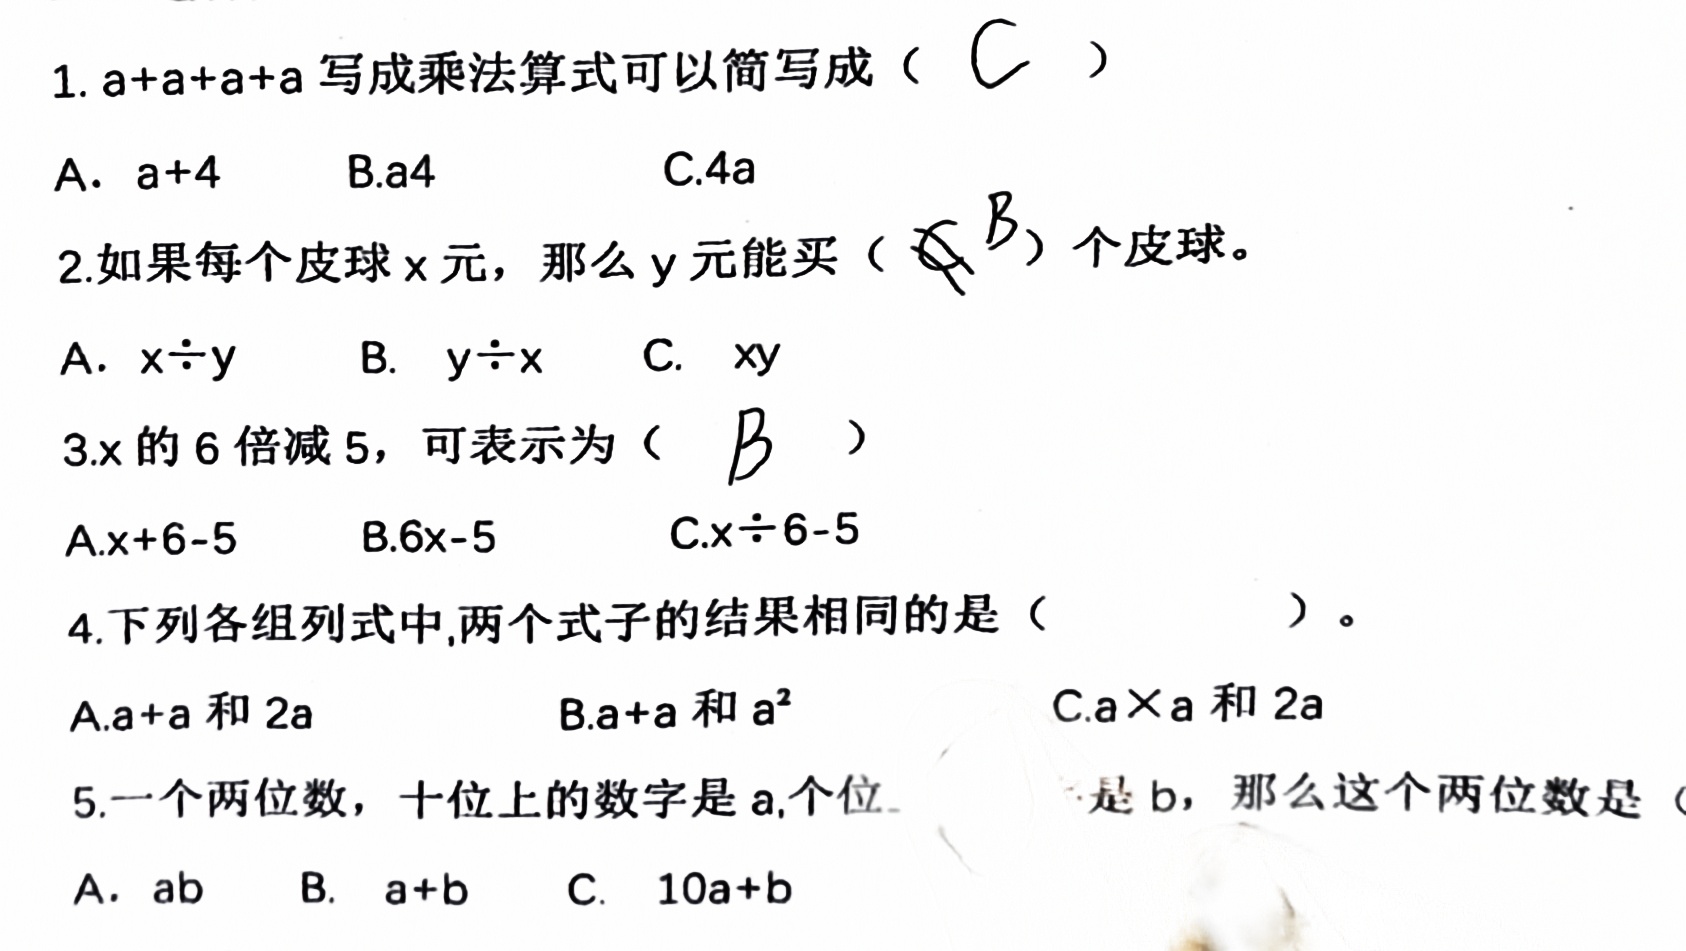 1. a+a+a+a 写成乘法算式可以简写成（ C ）
A. a+4 B.a4 C.4a
2.如果每个皮球 x 元，那么 y 元能买（ B ）个皮球。
A. x÷y B. y÷x C. xy
3.x 的 6 倍减 5，可表示为（ B ）
A.x+6-5 B.6x-5 C.x÷6-5
4.下列各组列式中,两个式子的结果相同的是（ ）。
A.a+a 和 2a B.a+a 和 a² C.a×a 和 2a
5.一个两位数，十位上的数字是 a,个位 是 b，那么这个两位数是（
A. ab B. a+b C. 10a+b